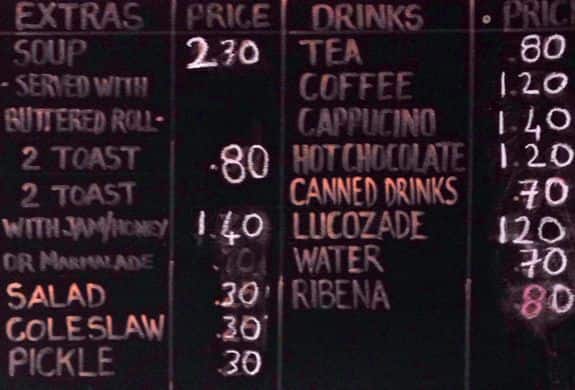 EXTRAS PRICE DRINKS PRICE
SOUP 2.30 TEA .80
- SERVED WITH COFFEE 1.20
BUTTERED ROLL - CAPPUCINO 1.40
2 TOAST .80 HOT CHOCOLATE 1.20
2 TOAST CANNED DRINKS .70
WITH JAM/HONEY 1.40 LUCOZADE 120
OR MARMALADE WATER .70
SALAD .30 RIBENA 80
COLESLAW .30
PICKLE 30